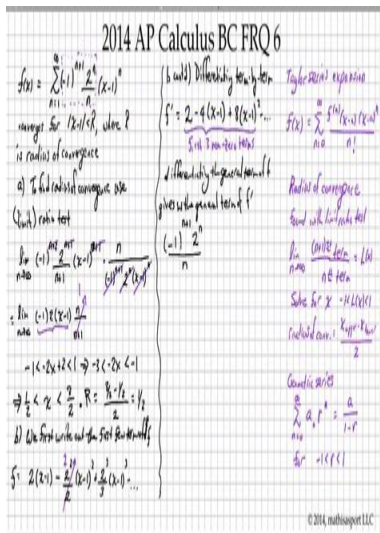 2014 AP Calculus BC FRQ 6
f(x) = ∑ (-1)^(n+1) 2^n/n (x-1)^n
n=1
converges for |x-1|<R, where R
is radius of convergence
a) To find radius of convergence use
(limit) ratio test
lim (-1)^(n+2) 2^(n+1)/(n+1) (x-1)^(n+1) · n/((-1)^(n+1) 2^n (x-1)^n)
n→∞
= lim (-1)2(x-1) n/(n+1)
n→∞
-1<-2x+2<1 ⇒ -3<-2x<-1
⇒ 1/2 < x < 3/2. R = (3/2-1/2)/2 = 1/2
b) We first write out the first few terms of f
f = 2(x-1) - 2^2/2 (x-1)^2 + 2^3/3 (x-1)^3 - ...
(b cont'd) Differentiating term-by-term
f' = 2-4(x-1)+8(x-1)^2-...
first 3 non-zero terms
differentiating the general term of f
gives us the general term of f'
(-1)^(n+1) 2^n
n
Taylor series expansion
f(x) = ∑ f^(n)(x-x)(x-x)^n
n=0 n!
Radius of convergence
found with limit ratio test
lim (n+1)st term = L(x)
n→∞ nth term
Solve for x -1<L(x)<1
Geometric series
∑ a·r^n = a/(1-r)
n=0
for -1<r<1
© 2014, mathisasport LLC